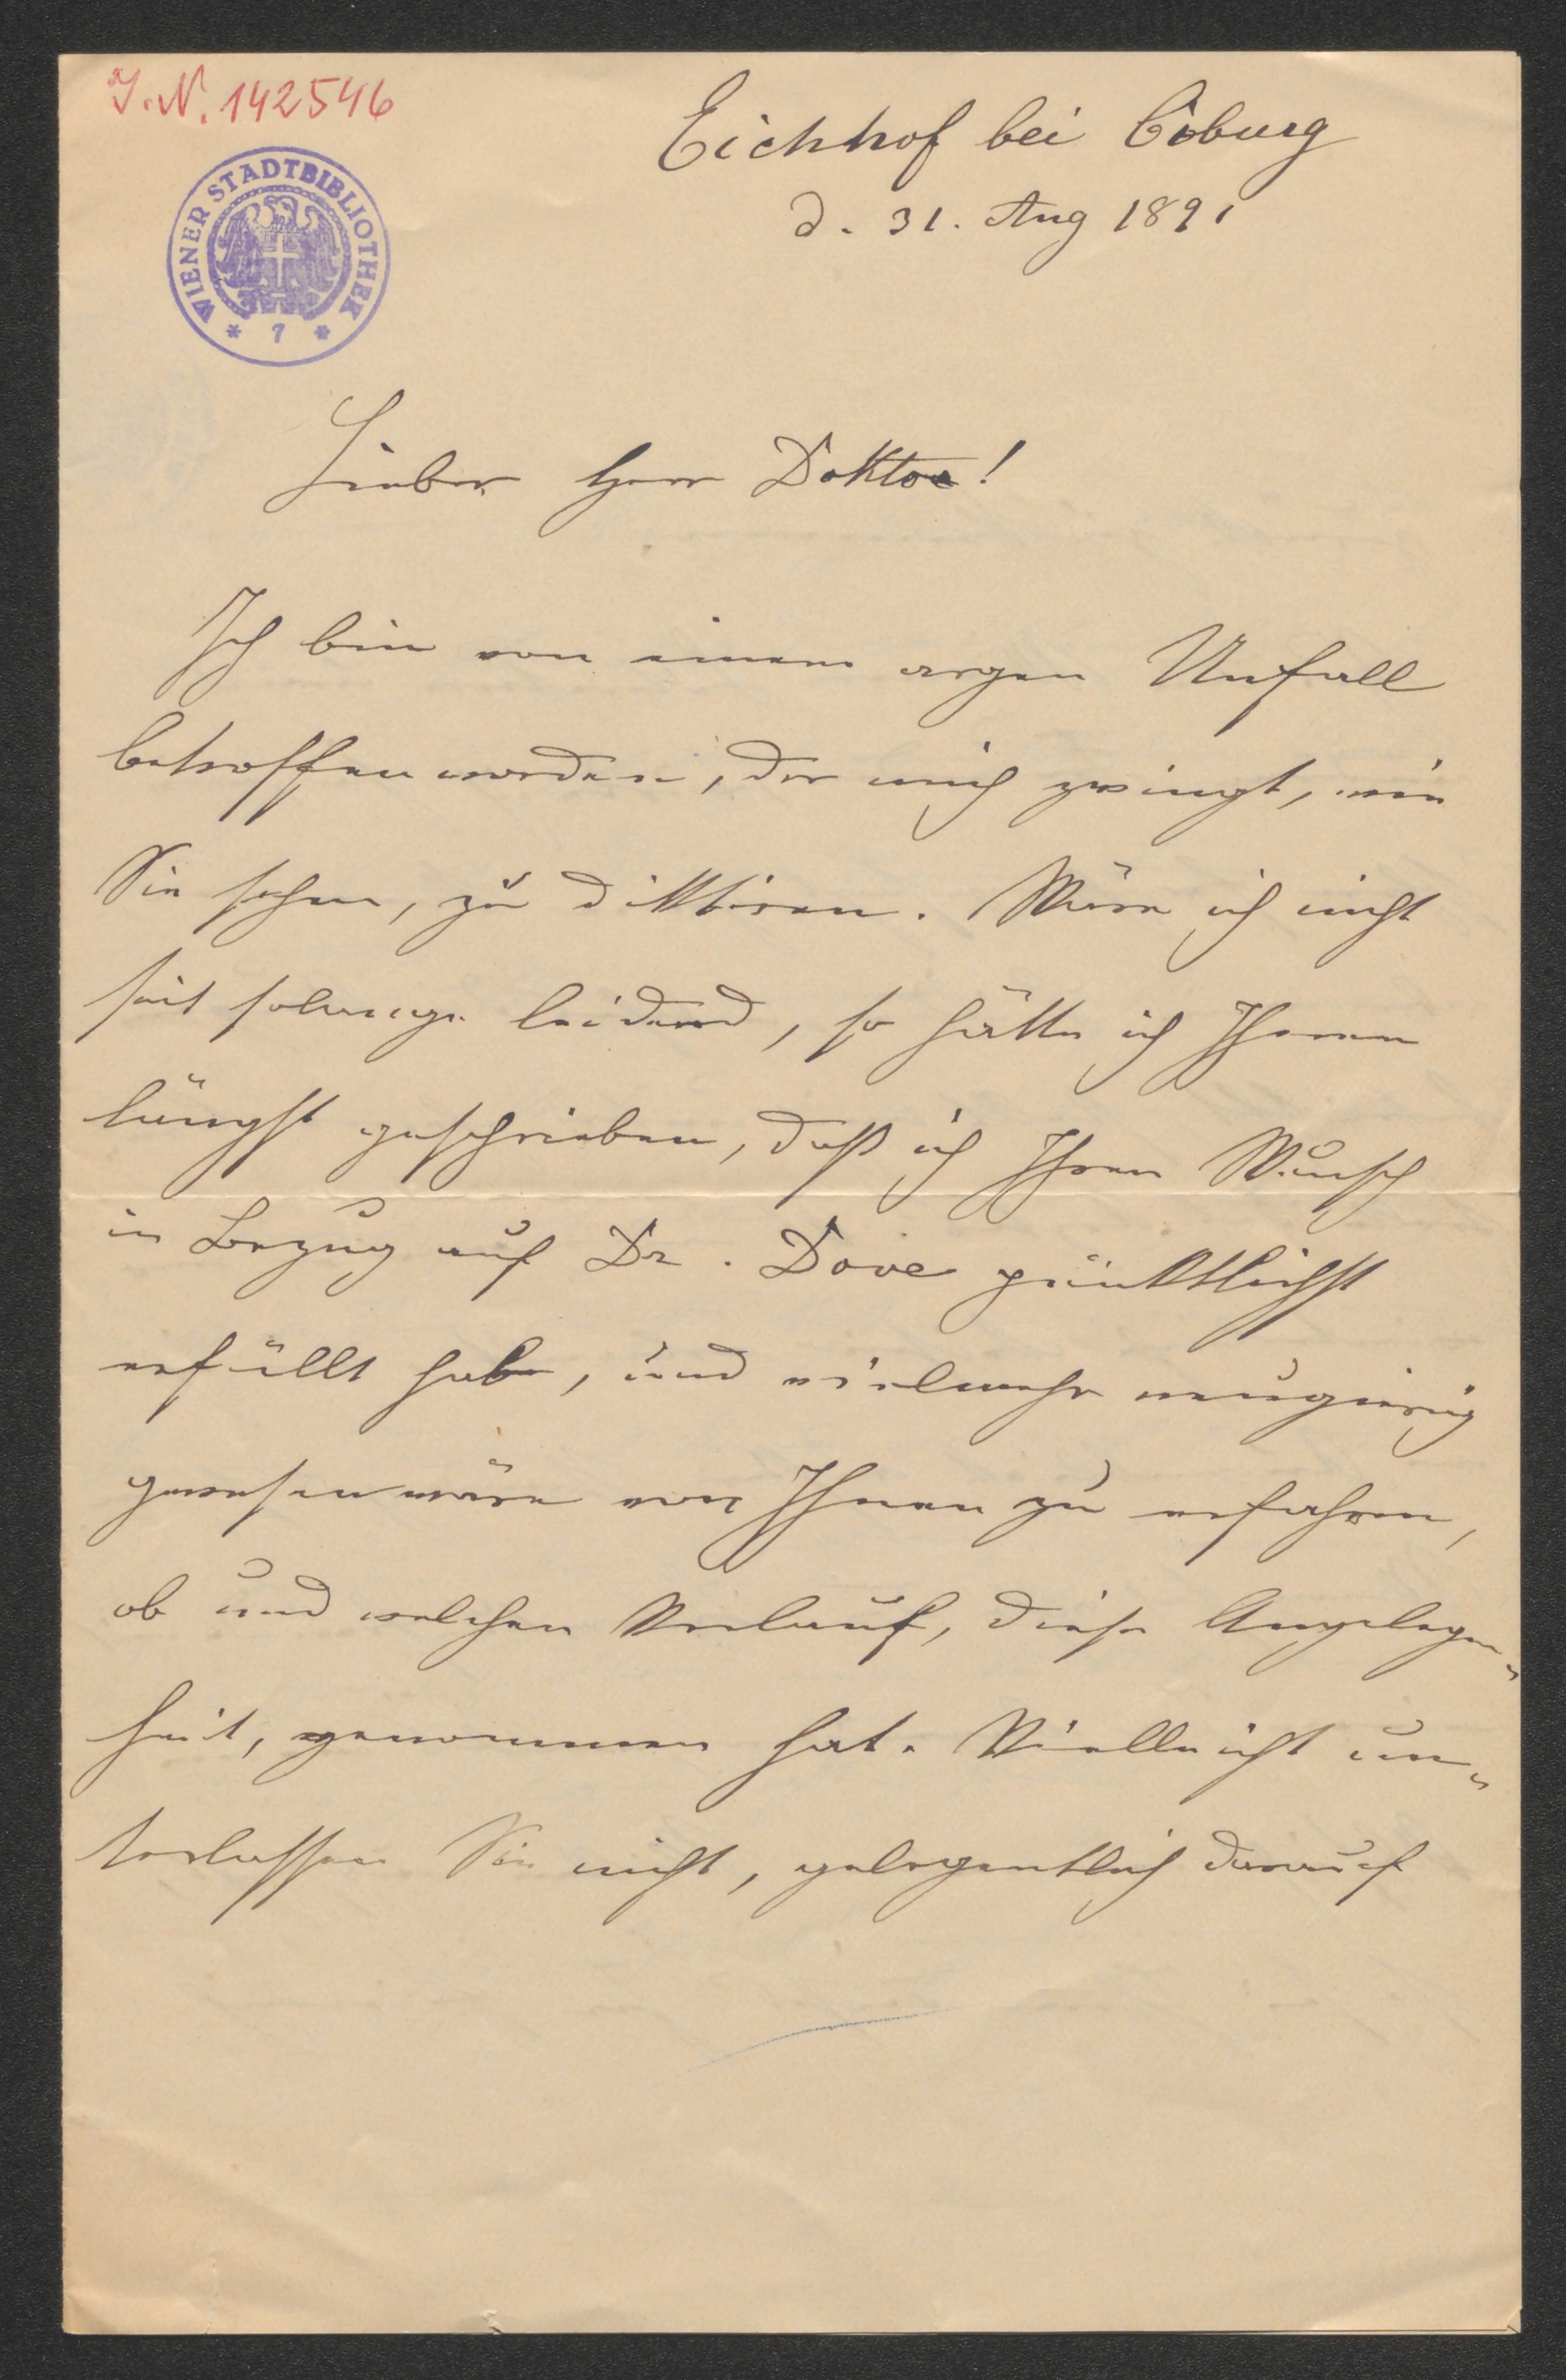 J. N. 142546
WIENER STADTBIBLIOTHEK
* 7 *
Eichhof bei Coburg
d. 31. Aug 1891
Lieber Herr Doktor!
Ich bin von einem argen Unfall
betroffen worden, der mich zwingt, wie
Sie sehen, zu diktiren. Wäre ich nicht
seit solange leidend, so hätte ich Ihnen
längst geschrieben, daß ich Ihren Wunsch
in Bezug auf Dr. Dove pünktlichst
erfüllt habe, und vielmehr neugierig
gewesen wäre von Ihnen zu erfahren,
ob und welchen Verlauf, diese Angelegen-
heit, genommen hat. Vielleicht un-
terlassen Sie nicht, gelegentlich darauf